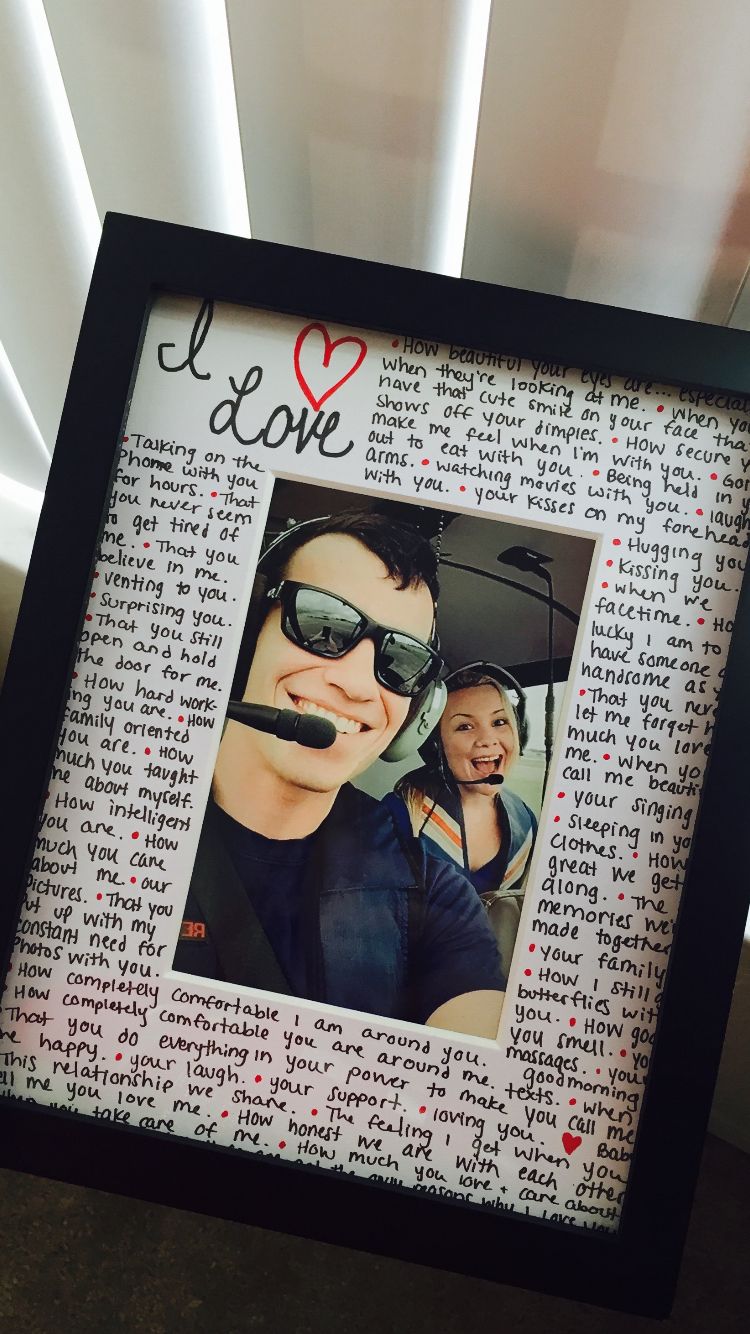 I
Love
• How beautiful your eyes are... especial
when they're looking at me. • when you
have that cute smile on your face tha
shows off your dimples. • How secure y
make me feel when I'm with you. • Goi
out to eat with you. • Being held in y
arms. • watching movies with you. • laugh
with you. • your kisses on my forehead
• Talking on the
phone with you
for hours. • That
you never seem
to get tired of
me. • That you
believe in me.
• venting to you.
• Surprising you.
• That you still
open and hold
the door for me.
• How hard work-
ing you are. • How
family oriented
you are. • How
much you taught
me about myself.
• How intelligent
you are. • How
much you care
about me. • our
pictures. • That you
put up with my
constant need for
photos with you.
• Hugging you
• Kissing you.
• when we
facetime. • Ho
lucky I am to
have someone a
handsome as y
• That you nev
let me forget h
much you love
me. • when yo
call me beauti
• your singing
• sleeping in yo
clothes. • How
great we get
along. • The
memories we'
made together
• your family
• How I still g
butterflies wit
you. • How goo
you smell. • yo
massages. • your
goodmorning
texts. • when
you call me
Bab
• How completely comfortable I am around you.
• How completely comfortable you are around me.
• That you do everything in your power to make
me happy. • your laugh. • your support. • loving you.
This relationship we share. • The feeling I get when you
tell me you love me. • How honest we are with each other
when you take care of me. • How much you love + care about
not the only reasons why I love you
RE